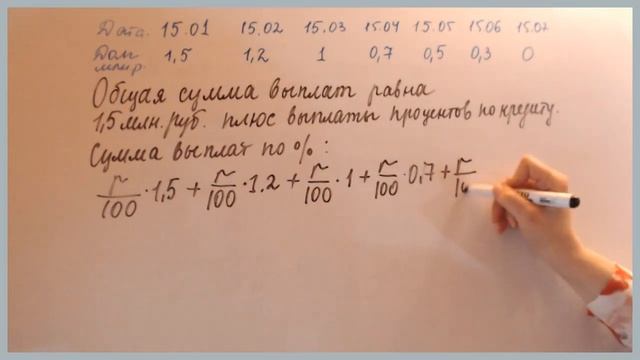 Дата. 15.01 15.02 15.03 15.04 15.05 15.06 15.07
Долг 1,5 1,2 1 0,7 0,5 0,3 0
млн.р.
Общая сумма выплат равна
1,5 млн. руб. плюс выплаты процентов по кредиту.
Сумма выплат по %:
r/100 · 1,5 + r/100 · 1.2 + r/100 · 1 + r/100 · 0,7 + r/10